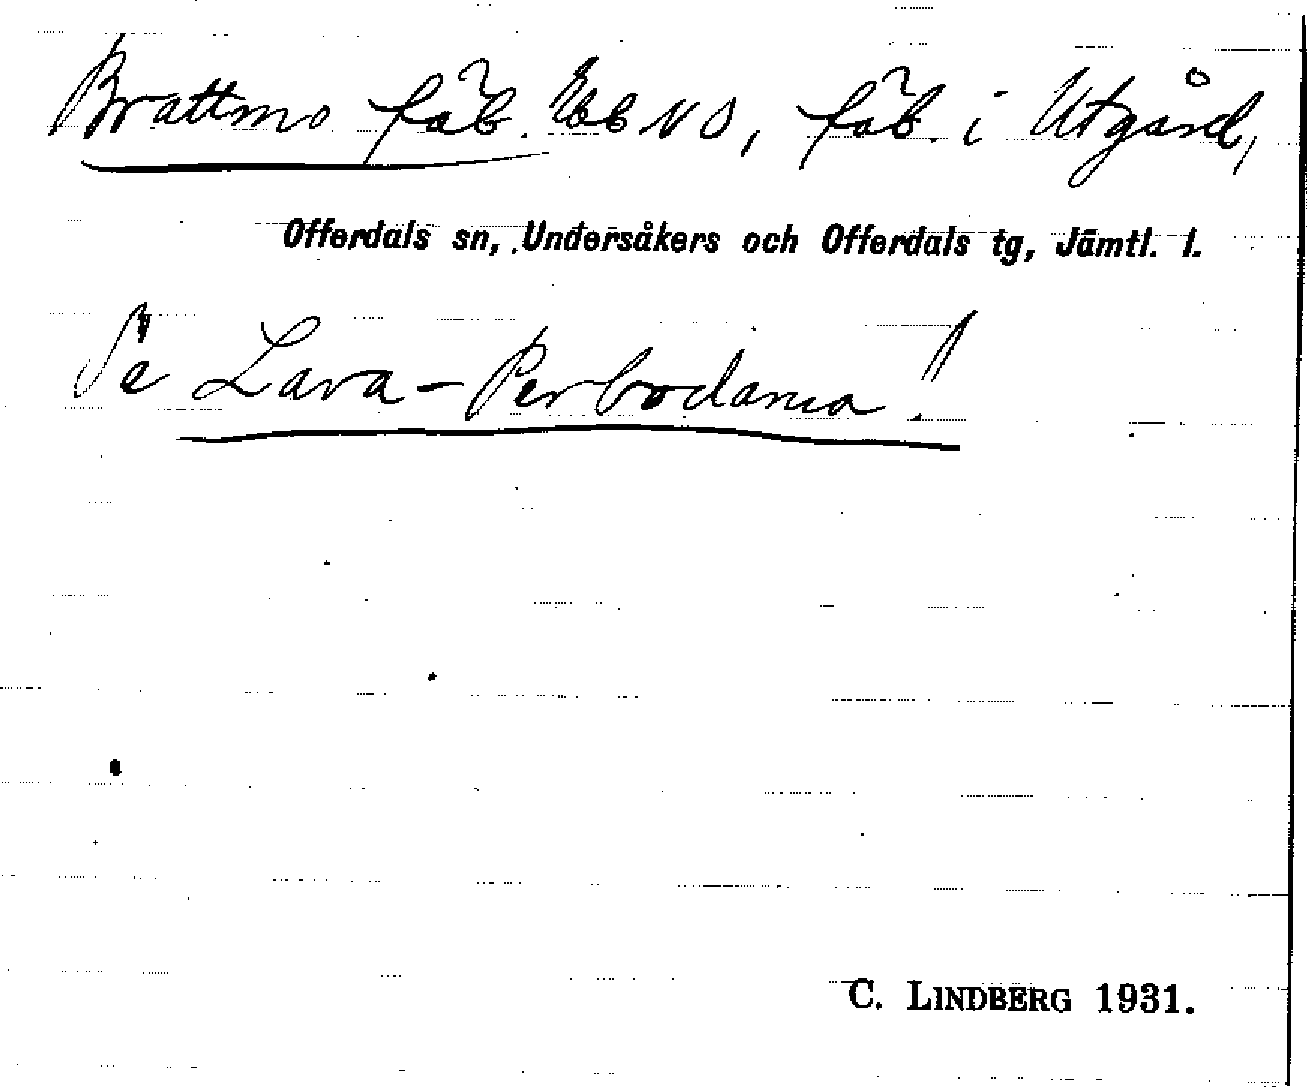 Brattmo fäb. Ebb NO, fäb. i Utgård,
Offerdals sn, Undersåkers och Offerdals tg, Jämtl. l.
Se Lara-Perbodarna!
C. LINDBERG 1931.